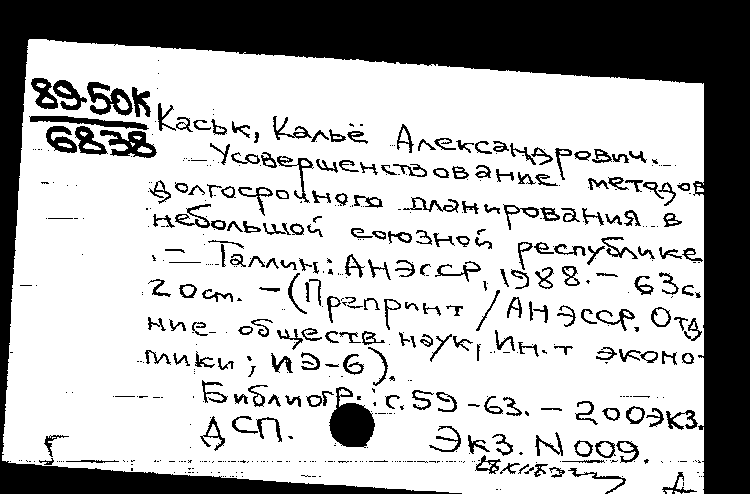 89-50К
6838
Каськ, Кальё Александрович.
Усовершенствование методов
долгосрочного планирования в
небольшой союзной республике
. - Таллин: АНЭССР, 1988. - 63с.
20 см. - (Препринт / АНЭССР. Отд-
ние обществ. наук, Ин-т эконо-
мики; ИЭ-6).
Библиогр.: с.59-63. - 200экз.
ДСП. Экз. N 009.